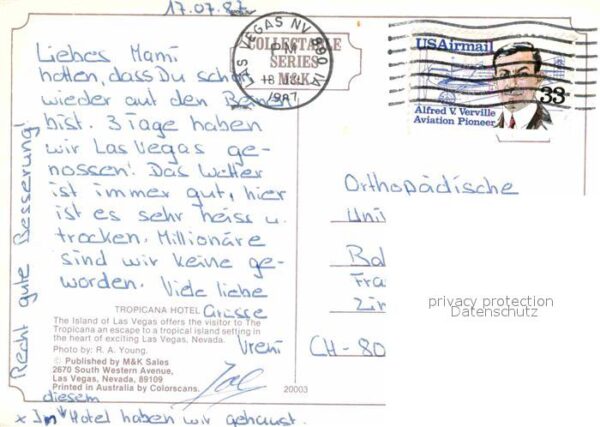 17.07.87
Liebes Mami
hoffen, dass Du schon
wieder auf den Beinen
bist. 3 Tage haben
wir Las Vegas ge-
nossen. Das Wetter
ist immer gut, hier
ist es sehr heiss u.
trocken. Millionäre
sind wir keine ge-
worden. Viele liebe
Grüsse
Vreni
Recht gute Besserung!
COLLECTABLE
SERIES
M&K
LAS VEGAS NV 890 1A
PM
18 JUL
1987
USAirmail
33
Alfred V. Verville
Aviation Pioneer
Orthopädische
Uni
Bal
Fra
Zür
CH-80
privacy protection
Datenschutz
TROPICANA HOTEL
The Island of Las Vegas offers the visitor to The
Tropicana an escape to a tropical island setting in
the heart of exciting Las Vegas, Nevada.
Photo by: R. A. Young.
© Published by M&K Sales
2670 South Western Avenue,
Las Vegas, Nevada, 89109
Printed in Australia by Colorscans.
20003
diesem
x In Hotel haben wir gehaust.